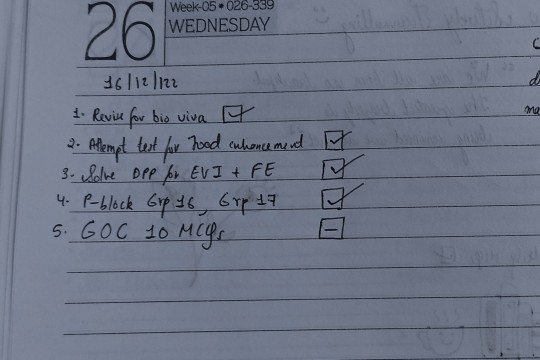 26
Week-05 • 026-339
WEDNESDAY
16/12/22
1. Revise for bio viva
2. Attempt test for Food enhancement
3. Solve DPP for EVI + FE
4. P-block Grp 16, Grp 17
5. GOC 10 MCQs